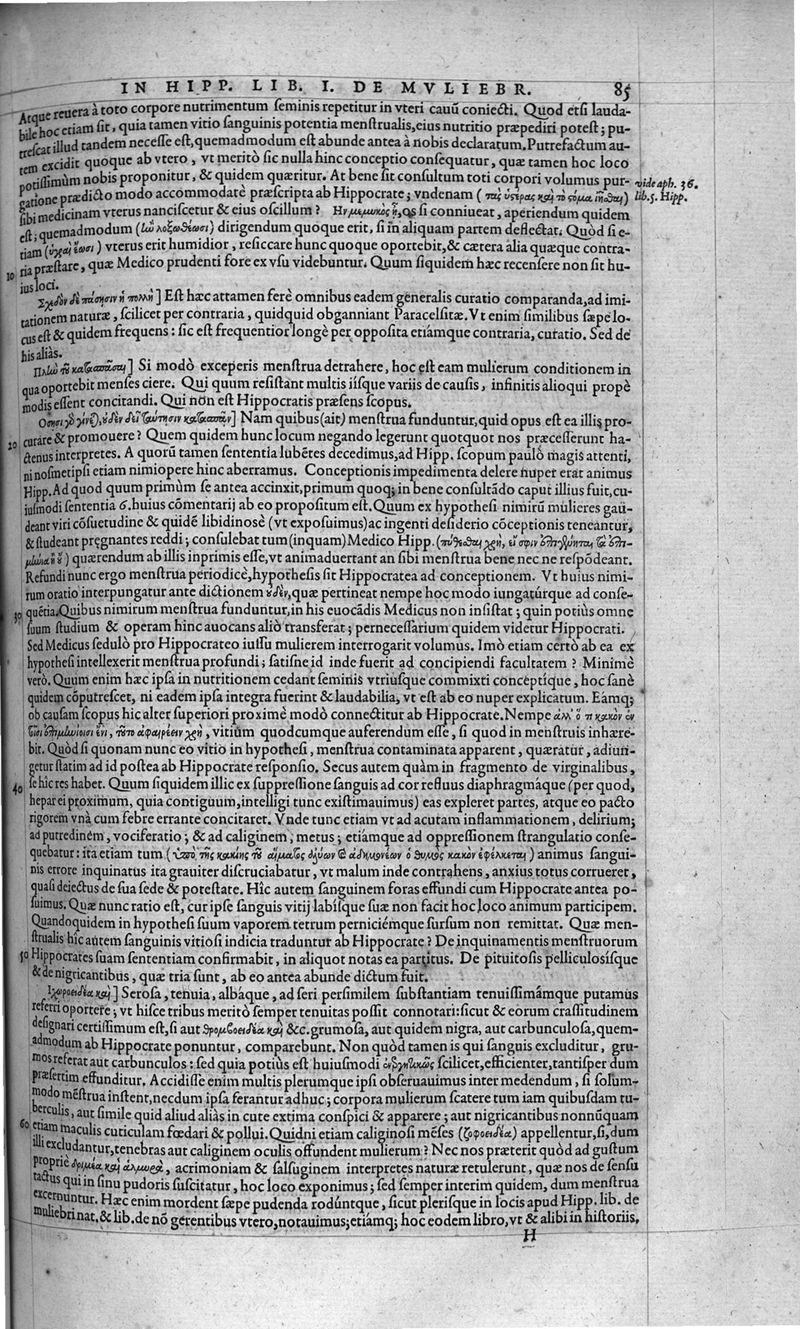 IN HIPP. LIB. I. DE MVLIEBR. 85
Atque reuera à toto corpore nutrimentum ſeminis repetitur in vteri cauũ coniecti. Quod etſi lauda-
bile hoc etiam ſit, quia tamen vitio ſanguinis potentia menſtrualis, eius nutritio præpediri poteſt; pu-
treſcat illud tandem neceſſe eſt, quemadmodum eſt abunde antea à nobis declaratum. Putrefactum au-
tem excidit quoque ab vtero, vt meritò ſic nulla hinc conceptio conſequatur, quæ tamen hoc loco
potiſſimùm nobis proponitur, & quidem quæritur. At bene ſit conſultum toti corpori volumus pur-
vide aph. 36.
gatione prædicto modo accommodatè præſcripta ab Hippocrate; vndenam (τὰς ὑστέρας καὶ τὸ στόμα
lib. 5. Hipp.
ſibi medicinam vterus nanciſcetur & eius oſcillum? Ην μεμυκὸς ᾖ, ſi conniueat, aperiendum quidem
eſt; quemadmodum dirigendum quoque erit, ſi in aliquam partem deflectat. Quòd ſi e-
tiam vterus erit humidior, reſiccare hunc quoque oportebit, & cætera alia quæque contra-
10 ria præſtare, quæ Medico prudenti fore ex vſu videbuntur. Quum ſiquidem hæc recenſere non ſit hu-
ius loci.
Σχεδὸν δὲ πάσησιν ἡ πολλὴ] Eſt hæc attamen ferè omnibus eadem generalis curatio comparanda, ad imi-
tationem naturæ, ſcilicet per contraria, quidquid obganniant Paracelſitæ. Vt enim ſimilibus ſæpe lo-
cus eſt & quidem frequens: ſic eſt frequentior longè per oppoſita etiámque contraria, curatio. Sed de
his aliàs.
Πλὴν τοῦ καταſπάσαι] Si modò exceperis menſtrua detrahere, hoc eſt eam mulierum conditionem in
qua oportebit menſes ciere. Qui quum reſiſtant multis iíſque variis de cauſis, infinitis alioqui propè
modis eſſent concitandi. Qui non eſt Hippocratis præſens ſcopus.
] Nam quibus (ait) menſtrua funduntur, quid opus eſt ea illis pro-
20 curare & promouere? Quem quidem hunc locum negando legerunt quotquot nos præceſſerunt ha-
ctenus interpretes. A quorũ tamen ſententia lubẽtes decedimus, ad Hipp. ſcopum pauló magis attenti,
ni noſmetipſi etiam nimiopere hinc aberramus. Conceptionis impedimenta delere nuper erat animus
Hipp. Ad quod quum primùm ſe antea accinxit, primum quoq; in bene conſultãdo caput illius fuit, cu-
iuſmodi ſententia 6. huius cõmentarij ab eo propoſitum eſt. Quum ex hypotheſi nimirũ mulieres gau-
deant viri cõſuetudine & quidẽ libidinosè (vt expoſuimus) ac ingenti deſiderio cõceptionis teneantur,
& ſtudeant pręgnantes reddi; conſulebat tum (inquam) Medico Hipp.
quærendum ab illis inprimis eſſe, vt animaduertant an ſibi menſtrua bene nec ne reſpõdeant.
Refundi nunc ergo menſtrua periodicè, hypotheſis ſit Hippocratea ad conceptionem. Vt huius nimi-
rum oratio interpungatur ante dictionem οὐδὲν, quæ pertineat nempe hoc modo iungatúrque ad conſe-
30 quẽtia. Quibus nimirum menſtrua funduntur, in his euocãdis Medicus non inſiſtat; quin potiùs omne
ſuum ſtudium & operam hinc auocans aliò transferat; perneceſſarium quidem videtur Hippocrati.
Sed Medicus ſedulò pro Hippocrateo iuſſu mulierem interrogarit volumus. Imò etiam certò ab ea ex
hypotheſi intellexerit menſtrua profundi; ſatiſne id inde fuerit ad concipiendi facultatem? Minimè
verò. Quum enim hæc ipſa in nutritionem cedant ſeminis vtriuſque commixti conceptíque, hoc ſanè
quidem cõputreſcet, ni eadem ipſa integra fuerint & laudabilia, vt eſt ab eo nuper explicatum. Eámq;
ob cauſam ſcopus hic alter ſuperiori proximè modò connectitur ab Hippocrate. Nempe ἀλλ' ὅ τι κακὸν ἐν
vitium quodcumque auferendum eſſe, ſi quod in menſtruis inhære-
bit. Quòd ſi quonam nunc eo vitio in hypotheſi, menſtrua contaminata apparent, quæratur, adiun-
getur ſtatim ad id poſtea ab Hippocrate reſponſio. Secus autem quàm in fragmento de virginalibus,
40 ſe hic res habet. Quum ſiquidem illic ex ſuppreſſione ſanguis ad cor refluus diaphragmáque (per quod,
hepar ei proximum, quia contiguum, intelligi tunc exiſtimauimus) eas expleret partes, atque eo pacto
rigorem vnà cum febre errante concitaret. Vnde tunc etiam vt ad acutam inflammationem, delirium;
ad putredinem, vociferatio; & ad caliginem, metus; etiámque ad oppreſſionem ſtrangulatio conſe-
quebatur: ita etiam tum (ὑπὸ τῆς κακίης τοῦ αἵματος ὁ θυμὸς κακὸν ἐφέλκεται) animus ſangui-
nis errore inquinatus ita grauiter diſcruciabatur, vt malum inde contrahens, anxius totus corrueret,
quaſi deiectus de ſua ſede & poteſtate. Hîc autem ſanguinem foras effundi cum Hippocrate antea po-
ſuimus. Quæ nunc ratio eſt, cur ipſe ſanguis vitij labíſque ſuæ non facit hoc loco animum participem.
Quandoquidem in hypotheſi ſuum vaporem tetrum perniciémque ſurſum non remittat. Quæ men-
ſtrualis hîc autem ſanguinis vitioſi indicia traduntur ab Hippocrate? De inquinamentis menſtruorum
50 Hippocrates ſuam ſententiam confirmabit, in aliquot notas ea partitus. De pituitoſis pelliculosíſque
& de nigricantibus, quæ tria ſunt, ab eo antea abunde dictum fuit.
Ἰχωροειδέα καὶ] Seroſa, tenuia, albáque, ad ſeri perſimilem ſubſtantiam tenuiſſimámque putamus
referri oportere; vt hiſce tribus meritò ſemper tenuitas poſſit connotari: ſicut & eorum craſſitudinem
deſignari certiſſimum eſt, ſi aut θρομβοειδέα καὶ &c. grumoſa, aut quidem nigra, aut carbunculoſa, quem-
admodum ab Hippocrate ponuntur, comparebunt. Non quòd tamen is qui ſanguis excluditur, gru-
mos referat aut carbunculos: ſed quia potiùs eſt huiuſmodi ἐνεργητικῶς ſcilicet, efficienter, tantiſper dum
præſertim effunditur. Accidiſſe enim multis plerumque ipſi obſeruauimus inter medendum, ſi ſolum-
modo mẽſtrua inſtent, necdum ipſa ferantur adhuc; corpora mulierum ſcatere tum iam quibuſdam tu-
berculis, aut ſimile quid aliud aliàs in cute extima conſpici & apparere; aut nigricantibus nonnũquam
60 etiam maculis cuticulam fœdari & pollui. Quidni etiam caliginoſi mẽſes (ζοφοειδέα) appellentur, ſi, dum
illi excludantur, tenebras aut caliginem oculis offendunt mulierum? Nec nos præterit quòd ad guſtum
propriè δριμέα καὶ ἁλμυρὰ, acrimoniam & ſalſuginem interpretes naturæ retulerunt, quæ nos de ſenſu
tactus qui in ſinu pudoris ſuſcitatur, hoc loco exponimus; ſed ſemper interim quidem, dum menſtrua
excernuntur. Hæc enim mordent ſæpe pudenda rodúntque, ſicut pleriſque in locis apud Hipp. lib. de
muliebri nat. & lib. de nõ gerentibus vtero, notauimus; etiámq; hoc eodem libro, vt & alibi in hiſtoriis,
H